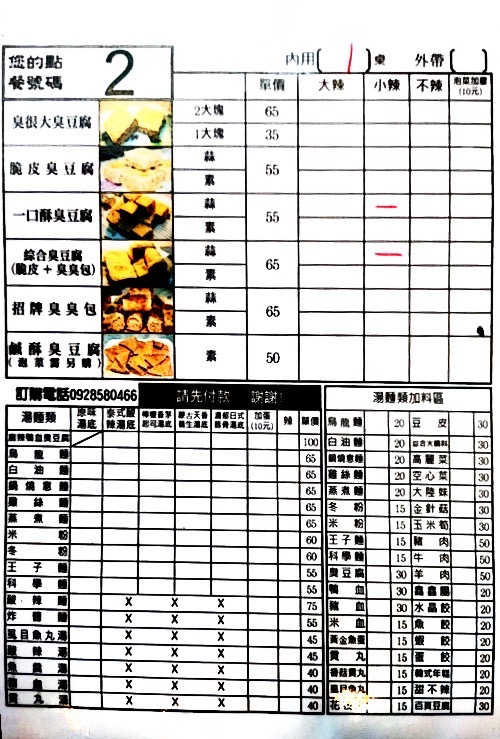 您的點
餐號碼
2
內用( | )桌 外帶( )
單價 大辣 小辣 不辣 泡菜加量(10元)
臭很大臭豆腐 2大塊 65
1大塊 35
脆皮臭豆腐 蒜 55
素
一口酥臭豆腐 蒜 55
素
綜合臭豆腐 蒜 65
(脆皮+臭臭包) 素
招牌臭臭包 蒜 65
素
鹹酥臭豆腐 素 50
(泡菜需另購)
訂購電話0928580466 請先付款 謝謝!
湯麵類 原味湯底 泰式酸辣湯底 檸檬香茅起司湯底 蒙古天香養生湯底 濃郁日式豚骨湯底 加蛋(10元) 辣 單價
麻辣鴨血臭豆腐 100
烏龍麵 65
白油麵 65
鍋燒意麵 65
雞絲麵 65
蒸煮麵 65
米粉 60
冬粉 60
王子麵 55
科學麵 55
酸辣麵 X X X 75
炸醬麵 X X X 55
虱目魚丸湯 X X X 45
酸辣湯 X X X 45
魚餃湯 X X X 40
X X X 40
貢丸湯 X X X 40
湯麵類加料區
烏龍麵 20 豆皮 30
白油麵 20 綜合火鍋料 30
鍋燒意麵 20 高麗菜 30
雞絲麵 20 空心菜 30
蒸煮麵 20 大陸妹 30
冬粉 15 金針菇 30
米粉 15 玉米筍 30
王子麵 15 豬肉 50
科學麵 15 牛肉 50
臭豆腐 30 羊肉 50
鴨血 30 鑫鑫腸 20
豬血 30 水晶餃 20
米血 15 魚餃 20
黃金魚蛋 15 蝦餃 20
貢丸 15 蛋餃 20
香菇貢丸 15 韓式年糕 20
虱目魚丸 15 甜不辣 20
花 15 百頁豆腐 30